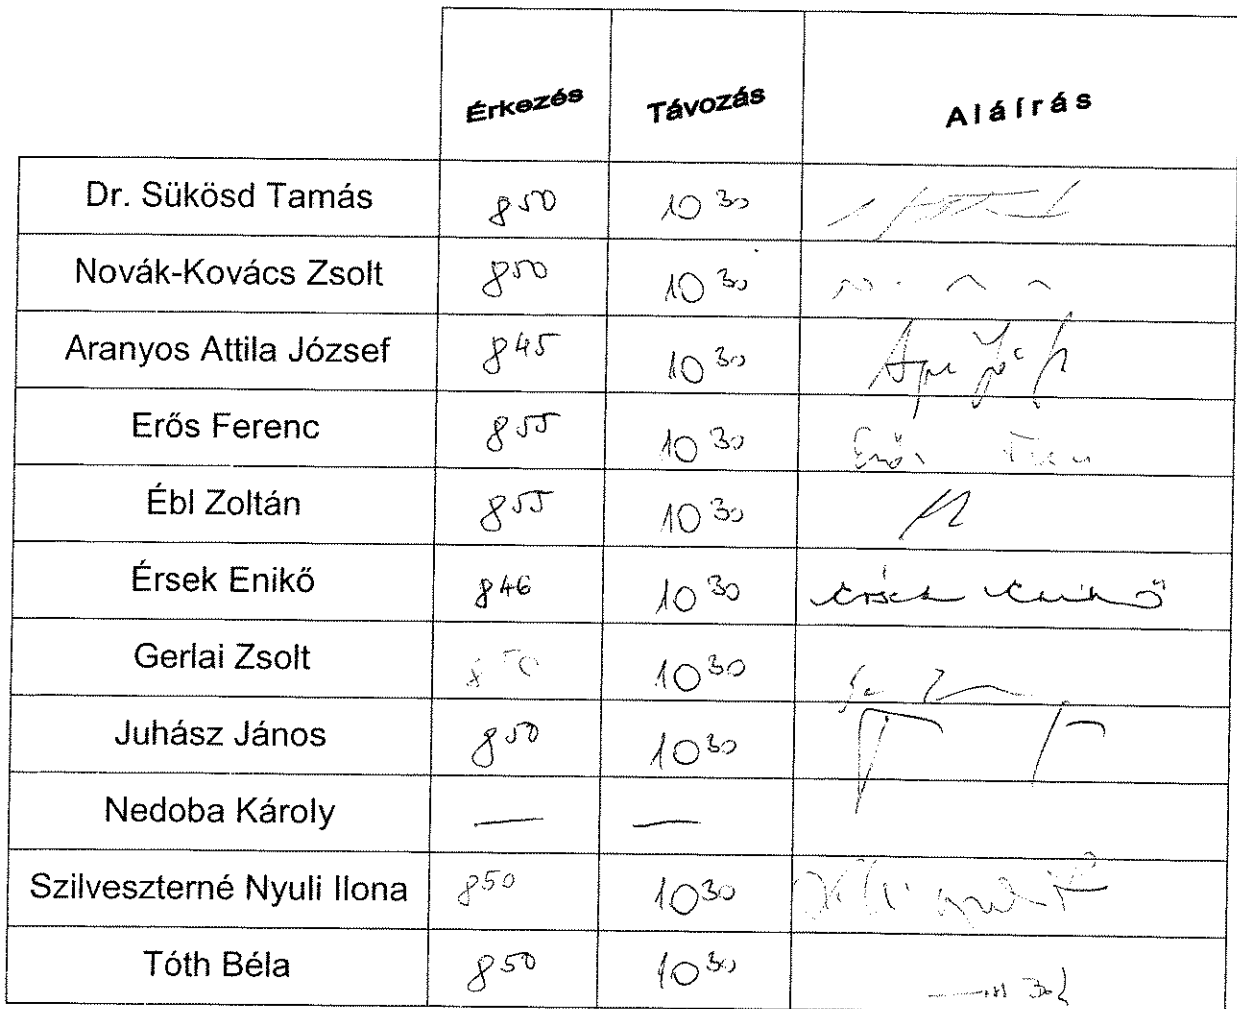 Érkezés Távozás Aláírás
Dr. Sükösd Tamás 8 50 10 30
Novák-Kovács Zsolt 8 50 10 30
Aranyos Attila József 8 45 10 30
Erős Ferenc 8 55 10 30 Erős
Ébl Zoltán 8 55 10 30
Érsek Enikő 8 46 10 30 Érsek Enikő
Gerlai Zsolt 8 50 10 30
Juhász János 8 50 10 30
Nedoba Károly — —
Szilveszterné Nyuli Ilona 8 50 10 30
Tóth Béla 8 50 10 30